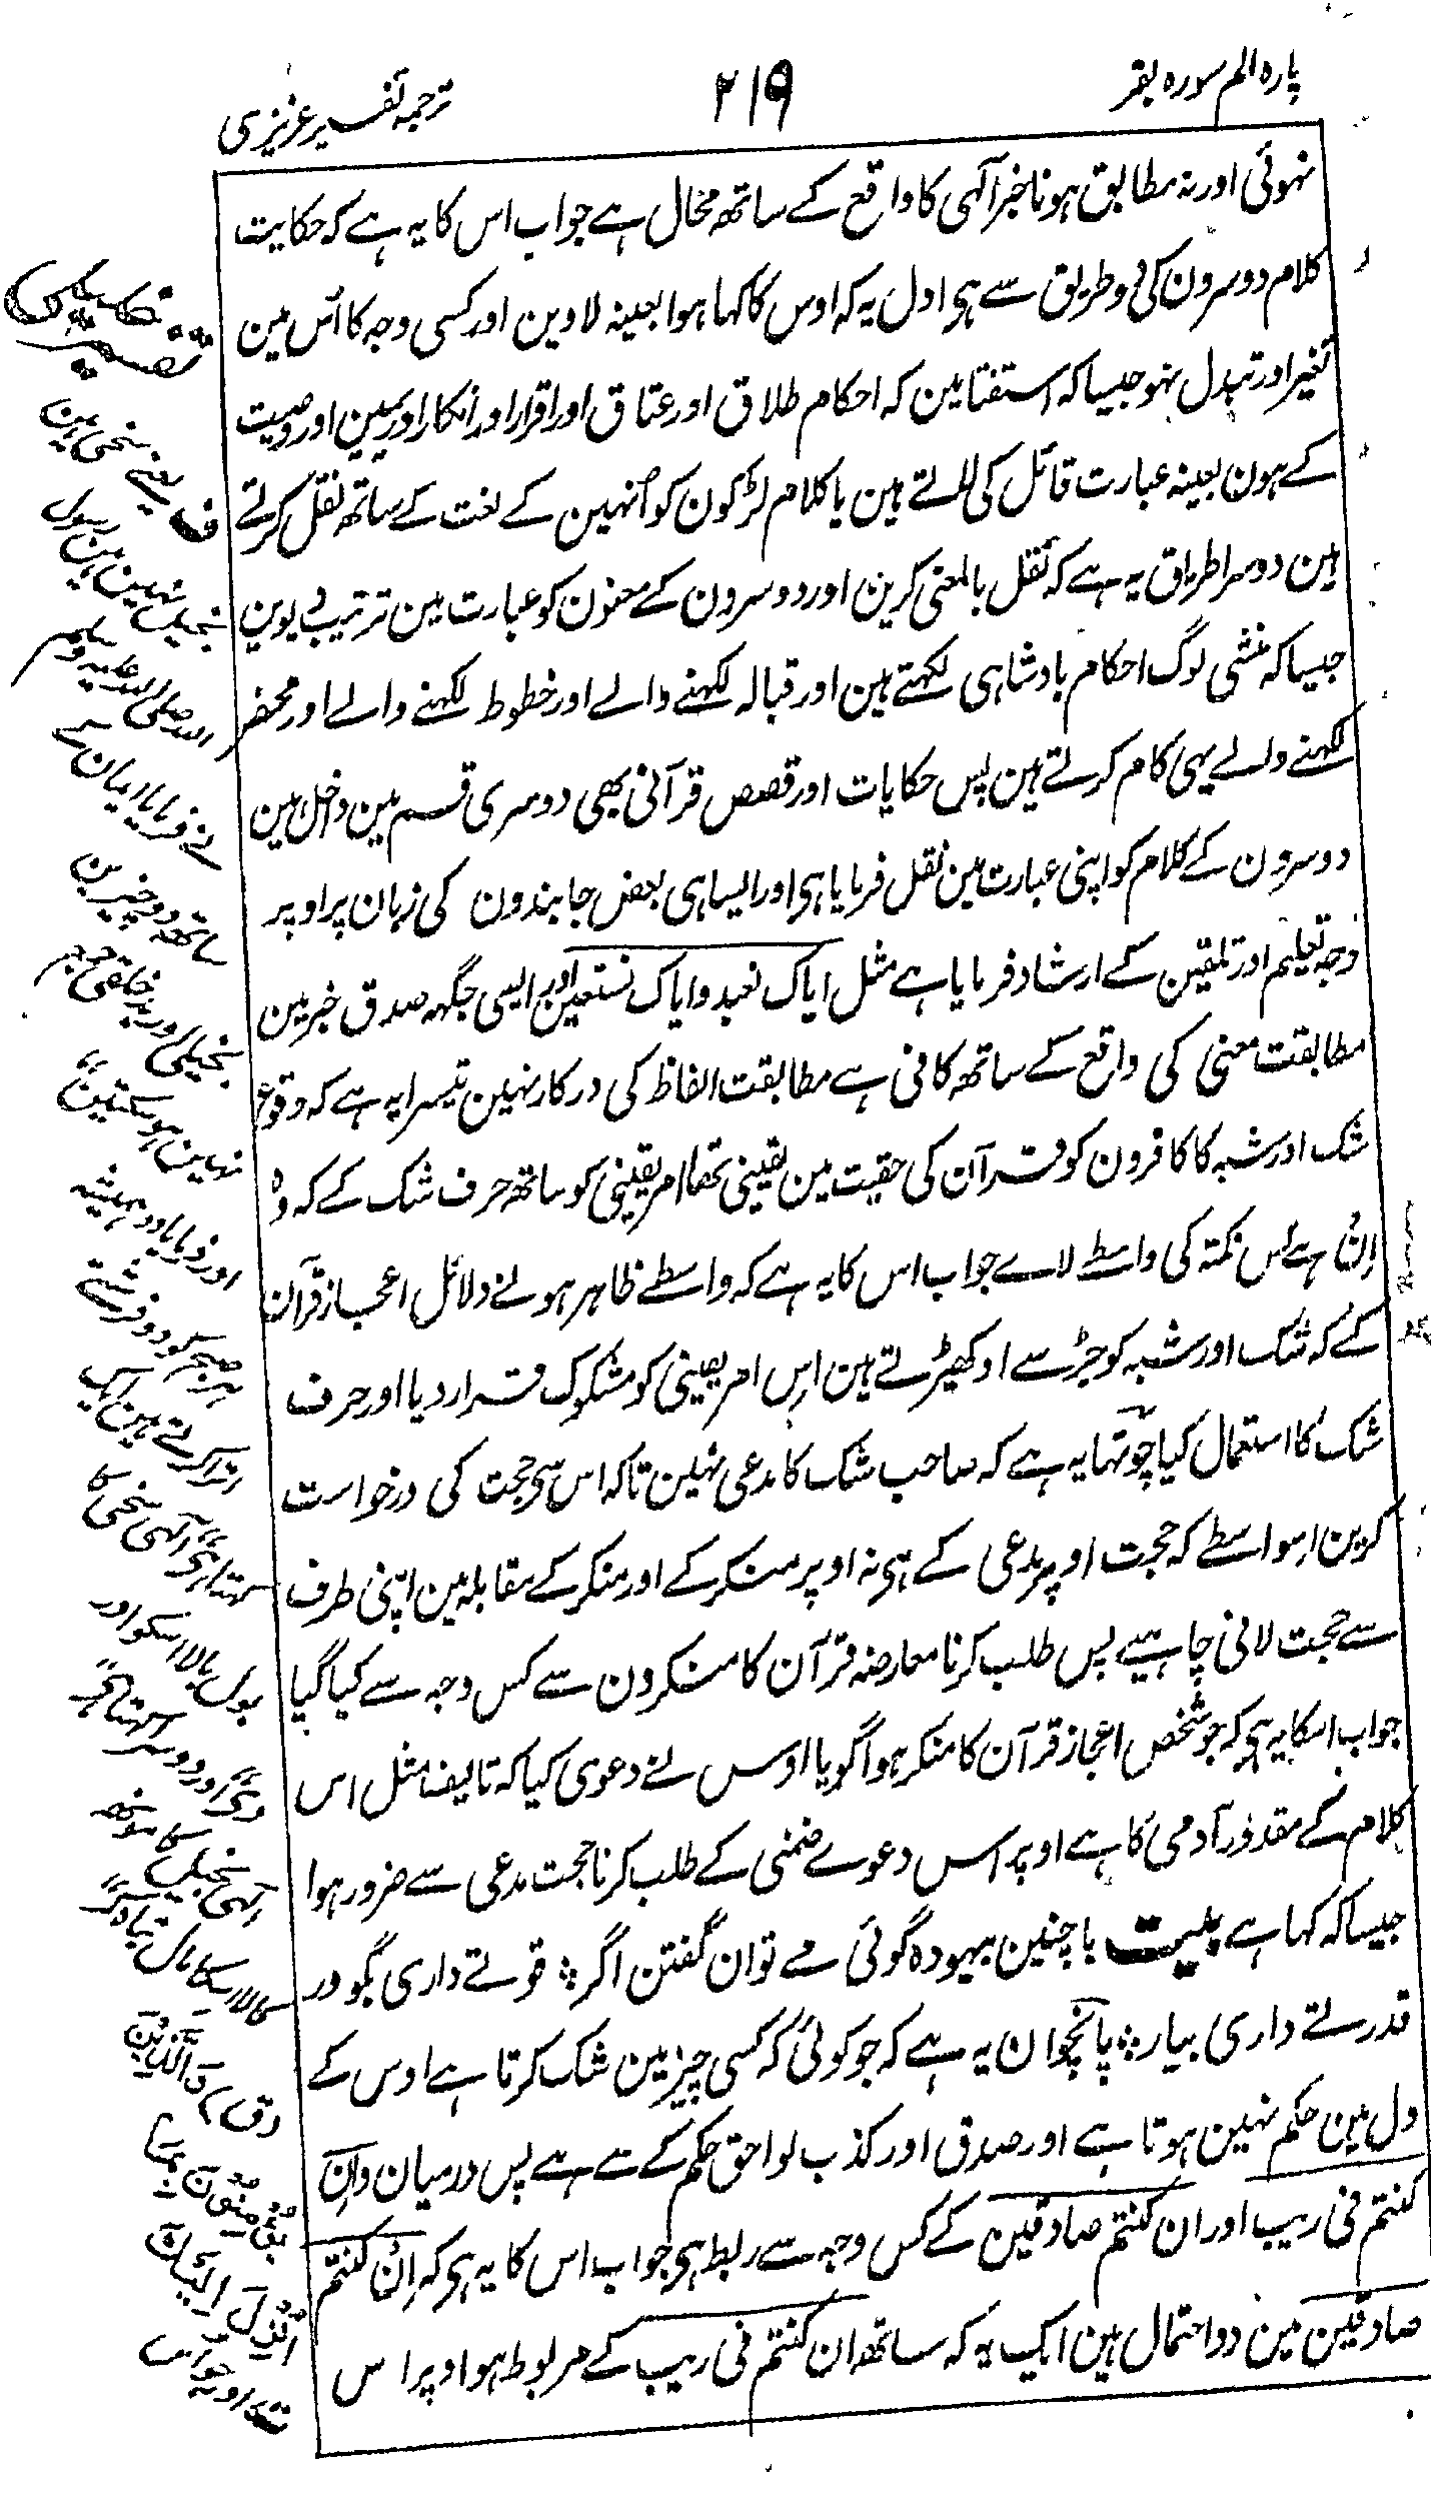 پارہ الم سورہ بقر
۲۱۹
ترجمہ تفسیر عزیزی
نہوئی اور نہ مطابق ہونا خبر آلہی کا واقع کے ساتھ محال ہے جواب اس کا یہ ہے کہ حکایت
کلام دوسرون کی دو طریق سے ہی اول یہ کہ اوس کا کہا ہوا بعینہ لاوین اور کسی وجہ کا اس مین
تغیر اور تبدل نہو جیسا کہ استفتا مین کہ احکام طلاق اور عتاق اور اقرار اور انکار اور یمین اور وصیت
کے ہون بعینہ عبارت قائل کی لاتے ہین یا کلام لڑکون کو اُنہین کے لغت کے ساتھ نقل کرتے
ہین دوسرا طریق یہ ہے کہ نقل بالمعنی کرین اور دوسرون کے معنون کو عبارت مین ترتیب دیوین
جیسا کہ منشی لوگ احکام بادشاہی لکہتے ہین اور قبالہ لکہنے والے اور خطوط لکہنے والے اور محضر
لکہنے والے یہی کام کرتے ہین پس حکایات اور قصص قرآنی بھی دوسری قسم مین داخل ہین
دوسرون کے کلام کو اپنی عبارت مین نقل فرمایا ہی اور ایسا ہی بعض جا بندون کی زبان پر اوپر
وجہ تعلیم اور تلقین کے ارشاد فرمایا ہے مثل ایاک نعبد وایاک نستعین اور ایسی جگہہ صدق خبر مین
مطابقت معنی کی واقع کے ساتھ کافی ہے مطابقت الفاظ کی درکار نہین تیسرا یہ ہے کہ وقوع
شک اور شبہ کا کافرون کو قرآن کی حقیت مین یقینی تھا امر یقینی کو ساتھ حرف شک کے کہ وہ
اِنْ ہے کس نکتہ کی واسطے لاے جواب اس کا یہ ہے کہ واسطے ظاہر ہونے دلائل اعجاز قرآن
کے کہ شک اور شبہ کو جڑ سے اوکھیڑتے ہین اس امر یقینی کو مشکوک قرار دیا اور حرف
شک کا استعمال کیا چوتہا یہ ہے کہ صاحب شک کا مدعی نہین تاکہ اس سی حجت کی درخواست
کرین اسواسطے کہ حجت اوپر مدعی کے ہی نہ اوپر منکر کے اور منکر کے مقابلہ مین اپنی طرف
سے حجت لانی چاہیے پس طلب کرنا معارضہ قرآن کا منکرون سے کس وجہ سے کیا گیا
جواب اسکا یہ ہی کہ جو شخص اعجاز قرآن کا منکر ہوا گویا اوس نے دعوی کیا کہ تالیف مثل اس
کلام کے مقدور آدمی کا ہے اوپر اس دعوے ضمنی کے طلب کرنا حجت مدعی سے ضرور ہوا
جیسا کہ کہا ہے بیت با چنین بیہودہ گوئی مے توان گفتن اگر ؞ قوتے داری بگو ور
قدرتے داری بیار ؞ پانچوان یہ ہے کہ جو کوئی کہ کسی چیز مین شک کرتا ہے اوس کے
دل مین حکم نہین ہوتا ہے اور صدق اور کذب لواحق حکم کے سے ہے پس درمیان وان
کنتم فی ریب اور ان کنتم صادقین کے کس وجہ سے ربط ہی جواب اس کا یہ ہی کہ اِنْ کنتم
صادقین مین دو احتمال ہین ایک یہ کہ ساتھ ان کنتم فی ریب کے مربوط ہو اوپر اس
ف یعنے سخی ہین
بخیل نہین ہین رسول
اللہ صلی اللہ علیہ وسلم
نے فرمایا ایمان کے
ساتھ دو چیزین
بخیلی اور بد خلقی جمع
نہین ہو سکتین
اور فرمایا ہمیشہ
ہر صبح کو دو فرشتے
اترا کرتے ہین ایک
کہتا ہے آلہی سخی کا
بول بالا اسکو اور
دے اور دوسرا کہتا ہے
الہی بخیل کا مونہہ
کالا اسکا مال تباہ کر